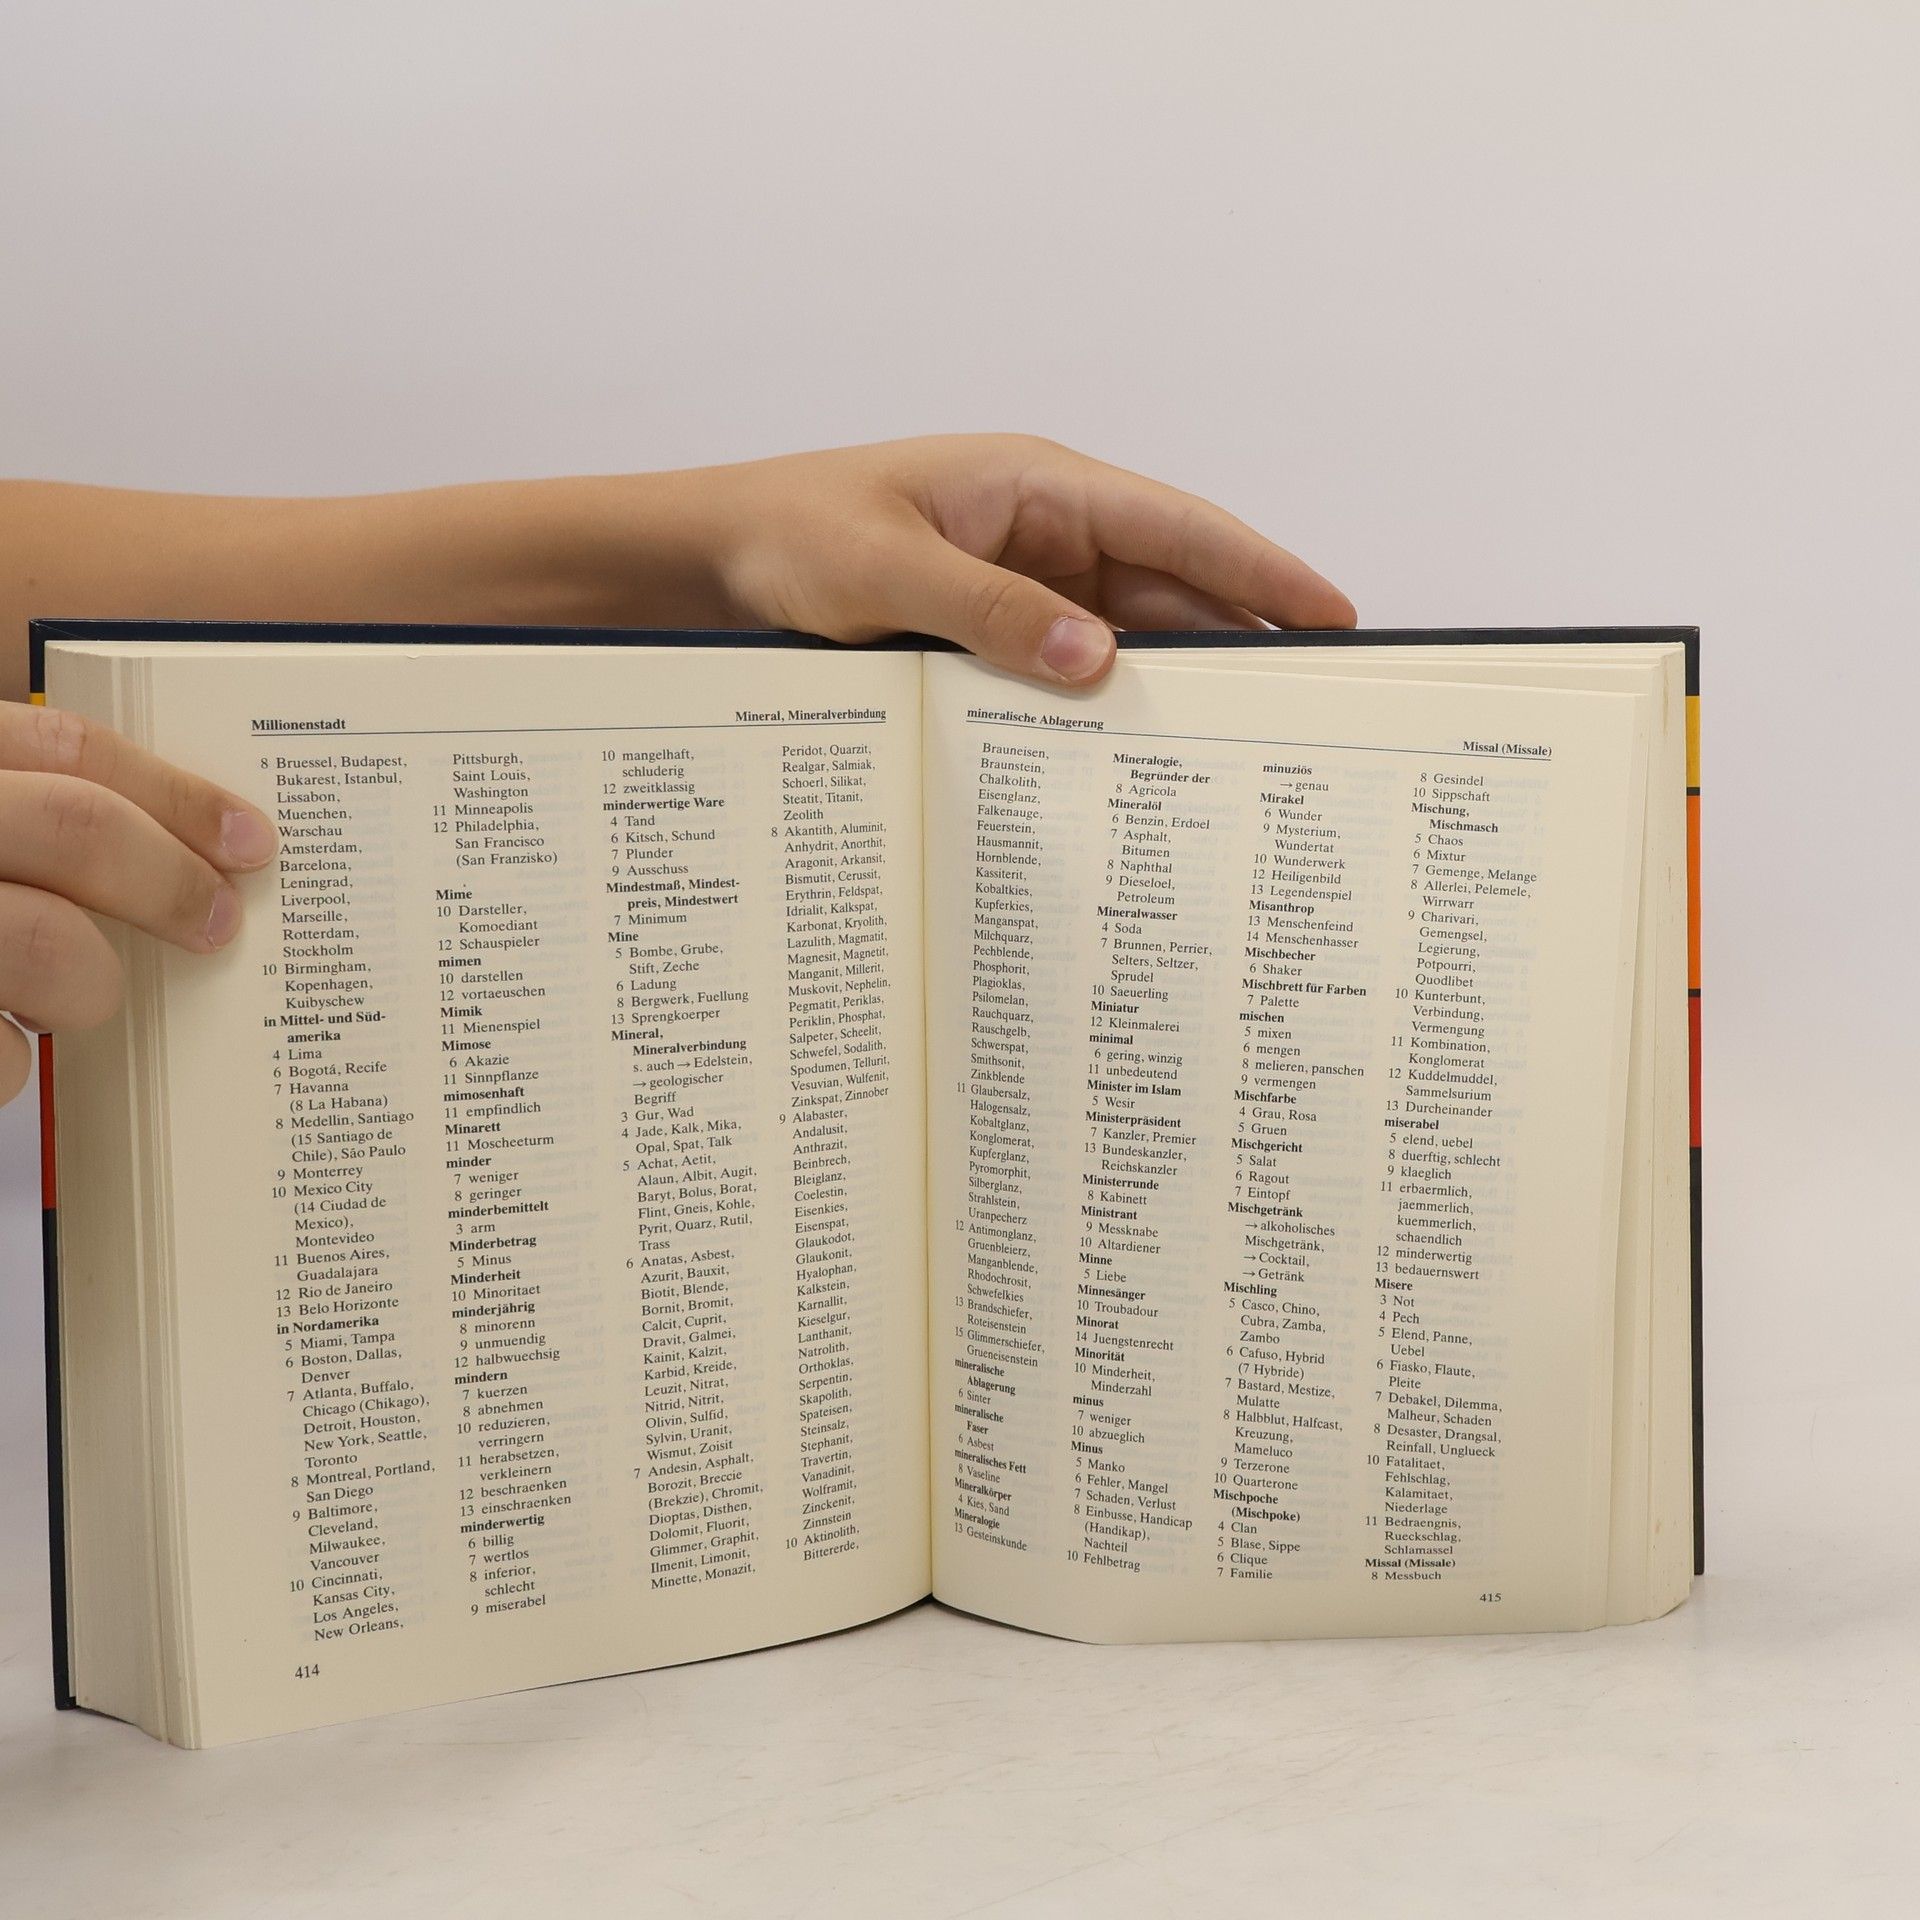 Millionenstadt
Mineral, Mineralverbindung
8 Bruessel, Budapest,
Bukarest, Istanbul,
Lissabon,
Muenchen,
Warschau
Amsterdam,
Barcelona,
Leningrad,
Liverpool,
Marseille,
Rotterdam,
Stockholm
10 Birmingham,
Kopenhagen,
Kuibyschew
in Mittel- und Süd-
amerika
4 Lima
6 Bogotá, Recife
7 Havanna
(8 La Habana)
8 Medellin, Santiago
(15 Santiago de
Chile), São Paulo
9 Monterrey
10 Mexico City
(14 Ciudad de
Mexico),
Montevideo
11 Buenos Aires,
Guadalajara
12 Rio de Janeiro
13 Belo Horizonte
in Nordamerika
5 Miami, Tampa
6 Boston, Dallas,
Denver
7 Atlanta, Buffalo,
Chicago (Chikago),
Detroit, Houston,
New York, Seattle,
Toronto
8 Montreal, Portland,
San Diego
9 Baltimore,
Cleveland,
Milwaukee,
Vancouver
10 Cincinnati,
Kansas City,
Los Angeles,
New Orleans,
Pittsburgh,
Saint Louis,
Washington
11 Minneapolis
12 Philadelphia,
San Francisco
(San Franzisko)
Mime
10 Darsteller,
Komoediant
12 Schauspieler
mimen
10 darstellen
12 vortaeuschen
Mimik
11 Mienenspiel
Mimose
6 Akazie
11 Sinnpflanze
mimosenhaft
11 empfindlich
Minarett
11 Moscheeturm
minder
7 weniger
8 geringer
minderbemittelt
3 arm
Minderbetrag
5 Minus
Minderheit
10 Minoritaet
minderjährig
8 minorenn
9 unmuendig
12 halbwuechsig
mindern
7 kuerzen
8 abnehmen
10 reduzieren,
verringern
11 herabsetzen,
verkleinern
12 beschraenken
13 einschraenken
minderwertig
6 billig
7 wertlos
8 inferior,
schlecht
9 miserabel
10 mangelhaft,
schluderig
12 zweitklassig
minderwertige Ware
4 Tand
6 Kitsch, Schund
7 Plunder
9 Ausschuss
Mindestmaß, Mindest-
preis, Mindestwert
7 Minimum
Mine
5 Bombe, Grube,
Stift, Zeche
6 Ladung
8 Bergwerk, Fuellung
13 Sprengkoerper
Mineral,
Mineralverbindung
s. auch → Edelstein,
→ geologischer
Begriff
3 Gur, Wad
4 Jade, Kalk, Mika,
Opal, Spat, Talk
5 Achat, Aetit,
Alaun, Albit, Augit,
Baryt, Bolus, Borat,
Flint, Gneis, Kohle,
Pyrit, Quarz, Rutil,
Trass
6 Anatas, Asbest,
Azurit, Bauxit,
Biotit, Blende,
Bornit, Bromit,
Calcit, Cuprit,
Dravit, Galmei,
Kainit, Kalzit,
Karbid, Kreide,
Leuzit, Nitrat,
Nitrid, Nitrit,
Olivin, Sulfid,
Sylvin, Uranit,
Wismut, Zoisit
7 Andesin, Asphalt,
Borozit, Breccie
(Brekzie), Chromit,
Dioptas, Disthen,
Dolomit, Fluorit,
Glimmer, Graphit,
Ilmenit, Limonit,
Minette, Monazit,
Peridot, Quarzit,
Realgar, Salmiak,
Schoerl, Silikat,
Steatit, Titanit,
Zeolith
8 Akantith, Aluminit,
Anhydrit, Anorthit,
Aragonit, Arkansit,
Bismutit, Cerussit,
Erythrin, Feldspat,
Idrialit, Kalkspat,
Karbonat, Kryolith,
Lazulith, Magmatit,
Magnesit, Magnetit,
Manganit, Millerit,
Muskovit, Nephelin,
Pegmatit, Periklas,
Periklin, Phosphat,
Salpeter, Scheelit,
Schwefel, Sodalith,
Spodumen, Tellurit,
Vesuvian, Wulfenit,
Zinkspat, Zinnober
9 Alabaster,
Andalusit,
Anthrazit,
Beinbrech,
Bleiglanz,
Coelestin,
Eisenkies,
Eisenspat,
Glaukodot,
Glaukonit,
Hyalophan,
Kalkstein,
Karnallit,
Kieselgur,
Lanthanit,
Natrolith,
Orthoklas,
Serpentin,
Skapolith,
Spateisen,
Steinsalz,
Stephanit,
Travertin,
Vanadinit,
Wolframit,
Zinckenit,
Zinnstein
10 Aktinolith,
Bittererde,
414
mineralische Ablagerung
Missal (Missale)
Brauneisen,
Braunstein,
Chalkolith,
Eisenglanz,
Falkenauge,
Feuerstein,
Hausmannit,
Hornblende,
Kassiterit,
Kobaltkies,
Kupferkies,
Manganspat,
Milchquarz,
Pechblende,
Phosphorit,
Plagioklas,
Psilomelan,
Rauchquarz,
Rauschgelb,
Schwerspat,
Smithsonit,
Zinkblende
11 Glaubersalz,
Halogensalz,
Kobaltglanz,
Konglomerat,
Kupferglanz,
Pyromorphit,
Silberglanz,
Strahlstein,
Uranpecherz
12 Antimonglanz,
Gruenbleierz,
Manganblende,
Rhodochrosit,
Schwefelkies
13 Brandschiefer,
Roteisenstein
15 Glimmerschiefer,
Grueneisenstein
mineralische
Ablagerung
6 Sinter
mineralische
Faser
6 Asbest
mineralisches Fett
8 Vaseline
Mineralkörper
4 Kies, Sand
Mineralogie
13 Gesteinskunde
Mineralogie,
Begründer der
8 Agricola
Mineralöl
6 Benzin, Erdoel
7 Asphalt,
Bitumen
8 Naphthal
9 Dieseloel,
Petroleum
Mineralwasser
4 Soda
7 Brunnen, Perrier,
Selters, Seltzer,
Sprudel
10 Saeuerling
Miniatur
12 Kleinmalerei
minimal
6 gering, winzig
11 unbedeutend
Minister im Islam
5 Wesir
Ministerpräsident
7 Kanzler, Premier
13 Bundeskanzler,
Reichskanzler
Ministerrunde
8 Kabinett
Ministrant
9 Messknabe
10 Altardiener
Minne
5 Liebe
Minnesänger
10 Troubadour
Minorat
14 Juengstenrecht
Minorität
10 Minderheit,
Minderzahl
minus
7 weniger
10 abzueglich
Minus
5 Manko
6 Fehler, Mangel
7 Schaden, Verlust
8 Einbusse, Handicap
(Handikap),
Nachteil
10 Fehlbetrag
minuziös
→ genau
Mirakel
6 Wunder
9 Mysterium,
Wundertat
10 Wunderwerk
12 Heiligenbild
13 Legendenspiel
Misanthrop
13 Menschenfeind
14 Menschenhasser
Mischbecher
6 Shaker
Mischbrett für Farben
7 Palette
mischen
5 mixen
6 mengen
8 melieren, panschen
9 vermengen
Mischfarbe
4 Grau, Rosa
5 Gruen
Mischgericht
5 Salat
6 Ragout
7 Eintopf
Mischgetränk
→ alkoholisches
Mischgetränk,
→ Cocktail,
→ Getränk
Mischling
5 Casco, Chino,
Cubra, Zamba,
Zambo
6 Cafuso, Hybrid
(7 Hybride)
7 Bastard, Mestize,
Mulatte
8 Halbblut, Halfcast,
Kreuzung,
Mameluco
9 Terzerone
10 Quarterone
Mischpoche
(Mischpoke)
4 Clan
5 Blase, Sippe
6 Clique
7 Familie
8 Gesindel
10 Sippschaft
Mischung,
Mischmasch
5 Chaos
6 Mixtur
7 Gemenge, Melange
8 Allerlei, Pelemele,
Wirrwarr
9 Charivari,
Gemengsel,
Legierung,
Potpourri,
Quodlibet
10 Kunterbunt,
Verbindung,
Vermengung
11 Kombination,
Konglomerat
12 Kuddelmuddel,
Sammelsurium
13 Durcheinander
miserabel
5 elend, uebel
8 duerftig, schlecht
9 klaeglich
11 erbaermlich,
jaemmerlich,
kuemmerlich,
schaendlich
12 minderwertig
13 bedauernswert
Misere
3 Not
4 Pech
5 Elend, Panne,
Uebel
6 Fiasko, Flaute,
Pleite
7 Debakel, Dilemma,
Malheur, Schaden
8 Desaster, Drangsal,
Reinfall, Unglueck
10 Fatalitaet,
Fehlschlag,
Kalamitaet,
Niederlage
11 Bedraengnis,
Rueckschlag,
Schlamassel
Missal (Missale)
8 Messbuch
415